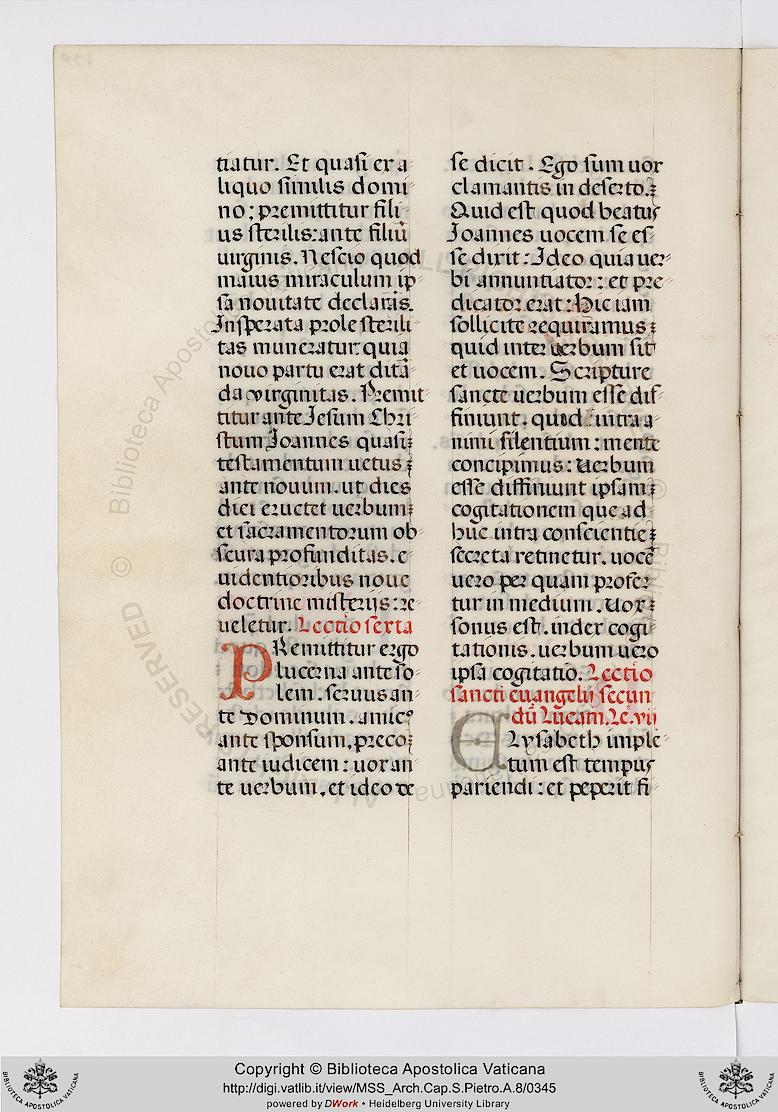 tiatur. Et quasi ex a
liquo similis domi
no: premittitur fili
us sterilis: ante filiū
uirginis. Nescio quod
maius miraculum ip
sa nouitate declarās.
Insperata prole sterili
tas muneratur: quia
nouo partu erat ditā
da virginitas. Premit
titur ante Iesum Chri
stum Joannes quasi
testamentum uetus
ante nouum. ut dies
diei eructet uerbum:
et sacramentorum ob
scura profunditas. e
uidentioribus noue
doctrine misterijs: re
ueletur. Lectio sexta
PRemittitur ergo
lucerna ante so
lem. seruus an
te Dominum. amicꝰ
ante sponsum, preco
ante iudicem: uox an
te uerbum, et ideo de
se dicit. Ego sum uox
clamantis in deserto.
Quid est quod beatus
Joannes uocem se es
se dixit: Ideo quia uer
bi annuntiator: et pre
dicator erat: Hic iam
sollicite requiramus
quid inter uerbum sit
et uocem. Scripture
sancte uerbum esse dif
finiunt. quod intra a
nimi silentium: mente
concipimus: Uerbum
esse diffiniunt ipsam
cogitationem que ad
huc intra conscientie
secreta retinetur. uocē
uero per quam profer
tur in medium. Uox
sonus est. index cogi
tationis. uerbum uero
ipsa cogitatio. Lectio
sancti euangelij secun
dū Lucam. Lē. vij
ELysabeth imple
tum est tempus
pariendi: et peperit fi
Copyright © Biblioteca Apostolica Vaticana
http://digi.vatlib.it/view/MSS_Arch.Cap.S.Pietro.A.8/0345
powered by DWork • Heidelberg University Library